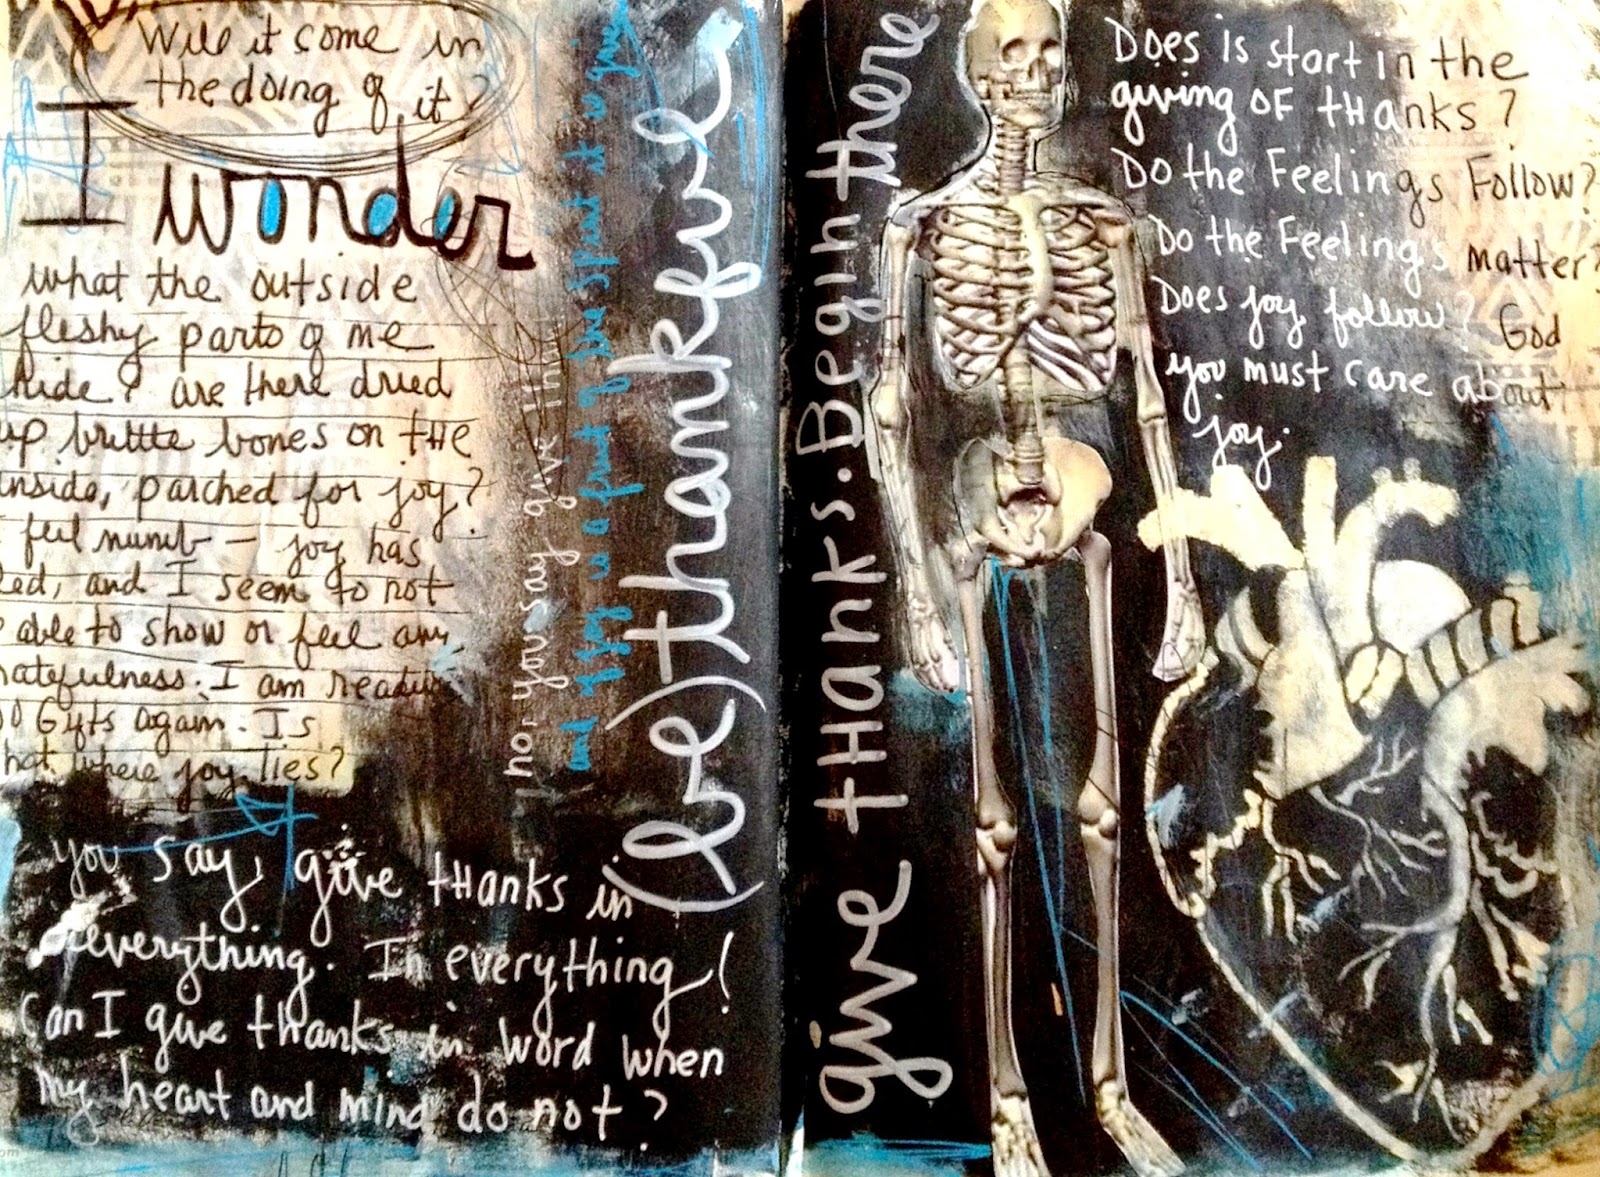 Will it come in
the doing of it?
I wonder
what the outside
fleshy parts of me
hide? are there dried
up brittle bones on the
inside, parched for joy?
feel numb — joy has
and I seem to not
able to show or feel any
I am reading
Gifts again. Is
where joy lies?
you say, give thanks in
everything. In everything!
Can I give thanks in word when
my heart and mind do not?
you say give
and if joy is a fruit of the Spirit
(be) thankful
give thanks. Begin there
Does is start in the
giving of thanks?
Do the Feelings Follow?
Do the Feelings matter?
Does joy follow? God
you must care about
joy.